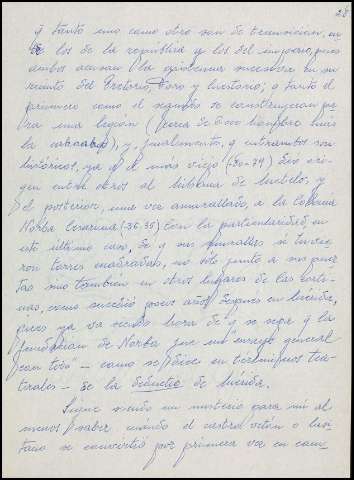 28
q tanto uno como otro son de transición, ni
de los de la república y los del imperio, pues
ambos acusan la epístema sucesoria en su
recinto del Pretorio, Foro y Cuestorio; q tanto el
primero como el segundo se construyeron pa-
ra una legión (cerca de 6.000 hombres más
la caballa), y, igualmente, q entrambos son
históricos, ya q el más viejo (-80-79) dio ori-
gen entre otros al topónimo de Metelo, y
el posterior, una vez amurallado, a la Colonia
Norba Cesarina (-36-35) con la particularidad, en
este último caso, de q sus murallas si tuvie-
ron torres cuadradas, no sólo junto a sus puer-
tas sino también en otros lugares de las corti-
nas, como sucedió pocos años después en Mérida,
pues ya va siendo hora de q se sepa q la
fundación de Norba fue un ensayo general
"con todo" - como se dice en tecnicismos tea-
trales - de la deductio de Mérida.
Sigue siendo un misterio para mí al
menos saber cuándo el castro vetón o lusi-
tano se convirtió por primera vez en cam-